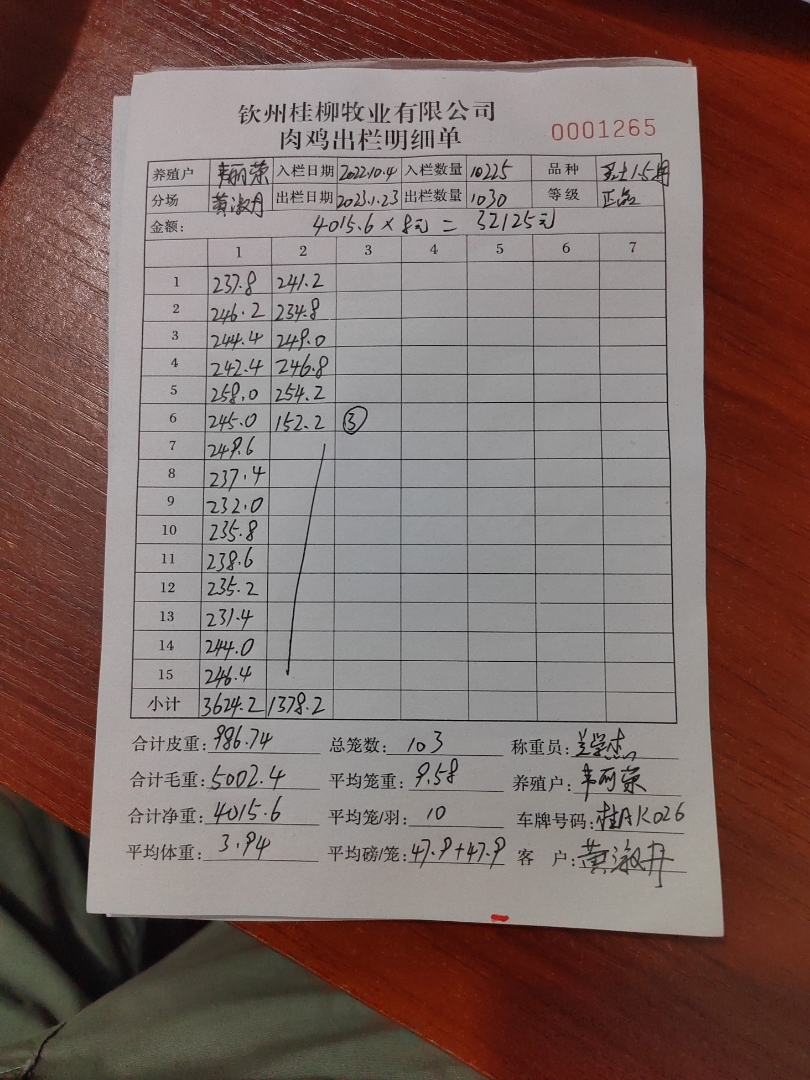 钦州桂柳牧业有限公司
肉鸡出栏明细单
0001265
养殖户 韦丽荣 入栏日期 2022.10.4 入栏数量 10225 品种
分场 黄淑丹 出栏日期 2023.1.23 出栏数量 1030 等级 正品
金额: 4015.6×8元=32125元
1 2 3 4 5 6 7
1 237.8 241.2
2 246.2 234.8
3 244.4 249.0
4 242.4 246.8
5 258.0 254.2
6 245.0 152.2 ③
7 249.6
8 237.4
9 232.0
10 235.8
11 238.6
12 235.2
13 231.4
14 244.0
15 246.4
小计 3624.2 1378.2
合计皮重: 986.74 总笼数: 103 称重员:
合计毛重: 5002.4 平均笼重: 9.58 养殖户: 韦丽荣
合计净重: 4015.6 平均笼/羽: 10 车牌号码: 桂AK026
平均体重: 3.94 平均磅/笼: 47.9+47.9 客 户: 黄淑丹